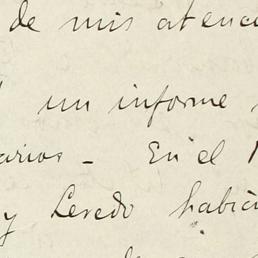 de mis atenc
un informe
arios - En el
y Leredo habic